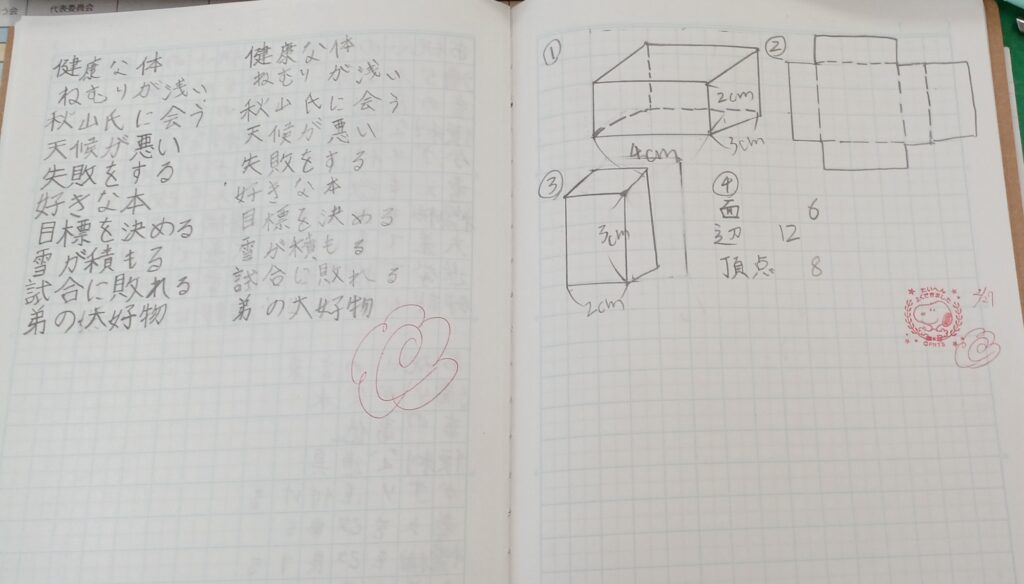 健康な体
ねむりが浅い
秋山氏に会う
天候が悪い
失敗をする
好きな本
目標を決める
雪が積もる
試合に敗れる
弟の大好物
健康な体
ねむりが浅い
秋山氏に会う
天候が悪い
失敗をする
好きな本
目標を決める
雪が積もる
試合に敗れる
弟の大好物
①
2cm
3cm
4cm
②
③
3cm
2cm
④
面 6
辺 12
頂点 8
たいへん
よくできました